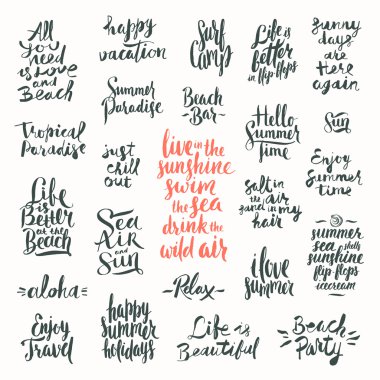 All
you
need
is Love
and
Beach
happy
vacation
Surf
Camp
Life is
better
in flip-flops
sunny
days
are
Here
again
Summer
Paradise
Beach
-Bar-
Hello
Summer
time
Sun
Tropical
Paradise
just
chill
out
live in the
sunshine
swim
the sea
drink the
wild air
Enjoy
Summer
time
Life
is
Better
at the
Beach
Sea
Air
and
Sun
Salt in
the air
sand in my
hair
summer
sea shells
sunshine
flip-flops
icecream
-aloha-
-Relax-
i love
summer
Enjoy
Travel
happy
summer
holidays
Life is
Beautiful
Beach
Party